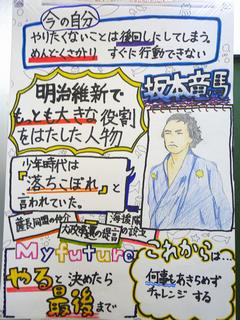 今の自分
やりたくないことは後回しにしてしまう。
めんどくさがり すぐに行動できない
坂本竜馬
明治維新で
もっとも大きな役割
をはたした人物
少年時代は
『落ちこぼれ』と
言われていた。
薩長同盟の仲介
海援隊の設立
大政奉還の提言
My future
これからは…
やると決めたら
最後まで
何事もあきらめず
チャレンジする